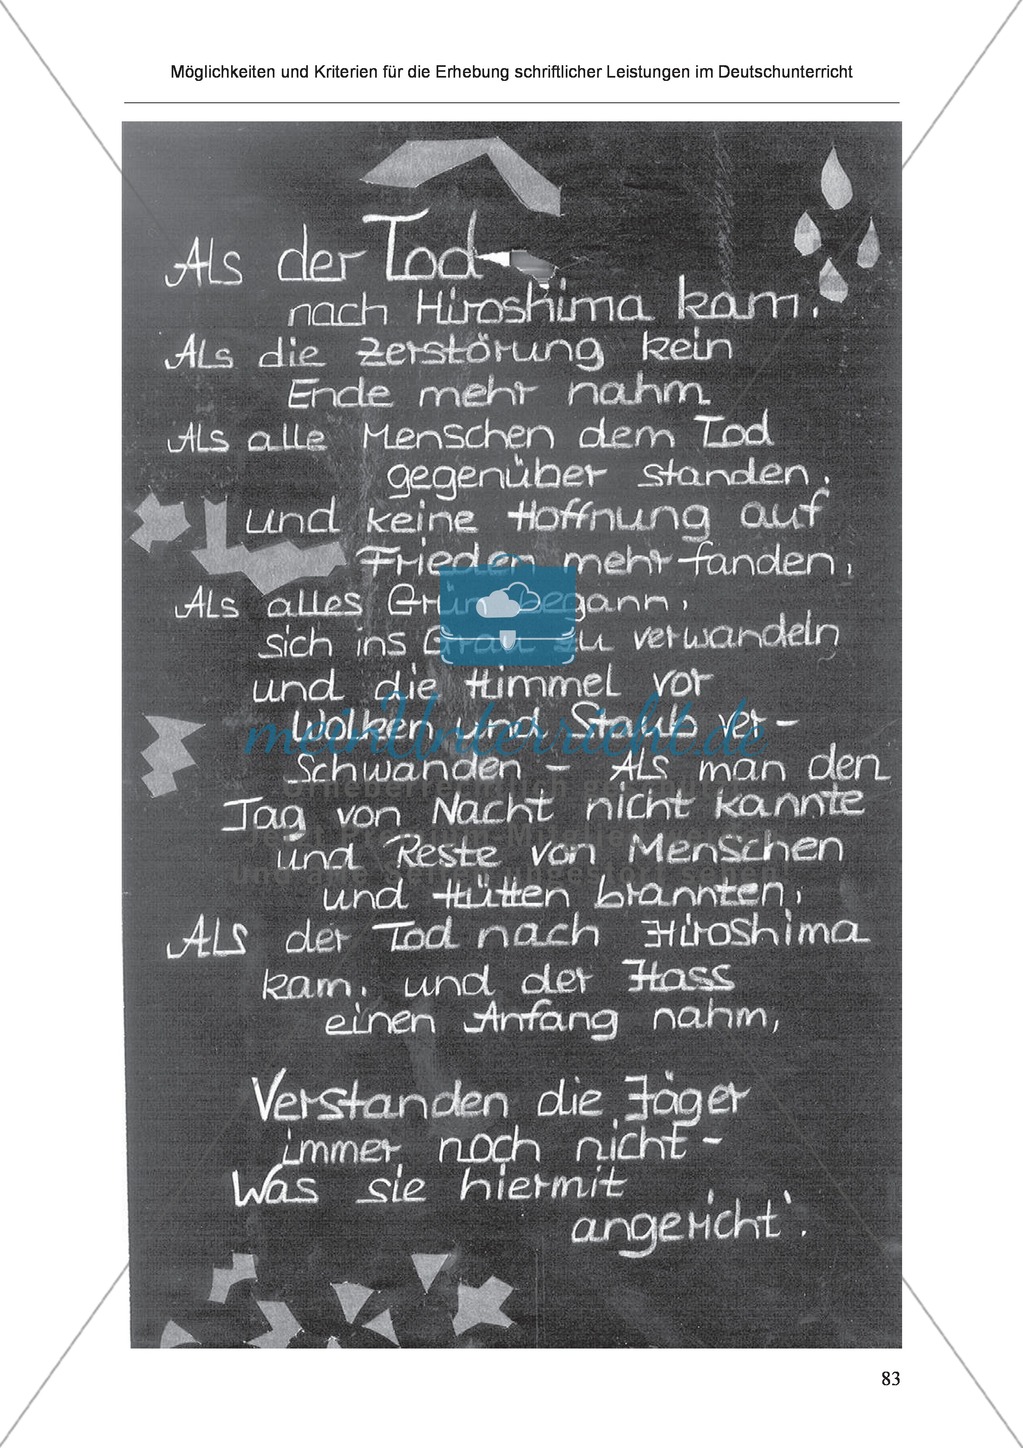 Möglichkeiten und Kriterien für die Erhebung schriftlicher Leistungen im Deutschunterricht
Als der Tod
nach Hiroshima kam,
Als die Zerstörung kein
Ende mehr nahm
Als alle Menschen dem Tod
gegenüber standen,
und keine Hoffnung auf
Frieden mehr fanden,
Als alles Grün begann,
sich ins Grau zu verwandeln
und die Himmel vor
Wolken und Staub ver-
schwanden - Als man den
Tag von Nacht nicht kannte
und Reste von Menschen
und Hütten brannten,
Als der Tod nach Hiroshima
kam, und der Hass
einen Anfang nahm,
Verstanden die Jäger
immer noch nicht -
Was sie hiermit
angericht'.
meinUnterricht.de
Urheberrechtlich geschützt
Jetzt Premium-Mitglied werden
und alle Seiten ungestört sehen!
83